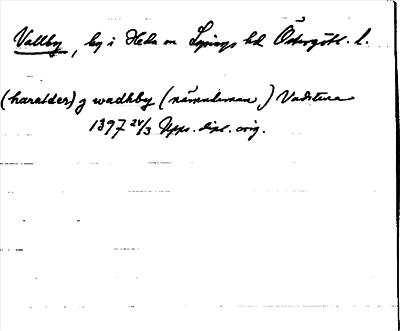 Vallby, by i Heda sn Lysings hd Östergötl. l.
(haralder) j wadhby (nämndeman) Vadstena
1397 24/3 Upps. dipl. orig.